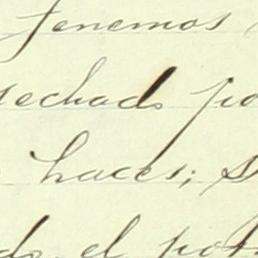 tenemos
sechado po
haces; s
do, el pot